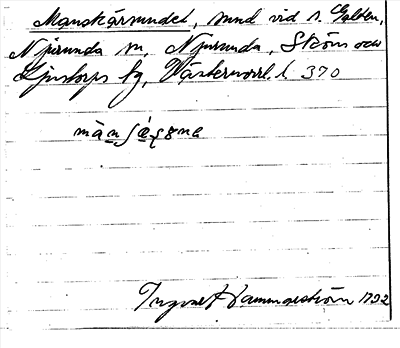 Manskärsundet, sund vid s. Galten,
Njurunda sn, Njurunda, Sköns och
Ljustorps tg, Västernorrl. l. 370
Ingvar Hammarström 1932